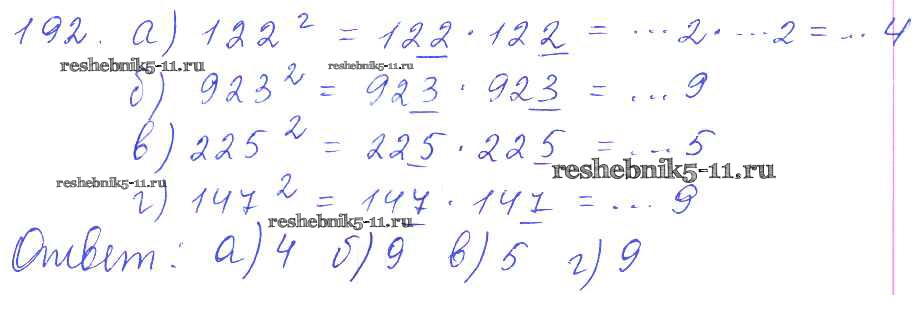 192. а) 122² = 122 · 122 = ...2 · ...2 = ...4
reshebnik5-11.ru reshebnik5-11.ru
б) 923² = 923 · 923 = ...9
в) 225² = 225 · 225 = ...5
reshebnik5-11.ru
reshebnik5-11.ru
г) 147² = 147 · 147 = ...9
reshebnik5-11.ru
Ответ: а) 4 б) 9 в) 5 г) 9